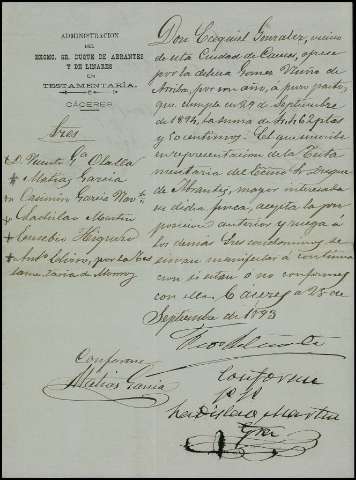 ADMINISTRACION
DEL
EXCMO. SR. DUQUE DE ABRANTES
Y DE LINARES
EN
TESTAMENTARÍA.
CÁCERES
Sres
D. Vicente Ga Olalla
Matias Garcia
Casimiro Garcia
Ladislao Martin
Eusebio Higuero
Anto por la Tes
tamentaria de Monroy
Don Ezequiel Gonzalez, vecino
de esta Ciudad de Caceres, ofrece
por la dehesa Gomez Nuño de
Arriba, por un año, a puro pasto,
que cumple en 29 de Septiembre
de 1894, la suma de
y 50 centimos. El que suscribe
en representacion de la Testa
mentaria del Excmo Sr. Duque
de Abrantes, mayor interesado
en dicha finca, acepta la pro
posicion anterior y ruega á
los demas Sres condominos se
sirvan manifestar á continua
cion si estan ó no conformes
con ella. Cáceres a 25 de
Septiembre de 1893
Conforme
Matias Garcia
Conforme
Ladislao Martin